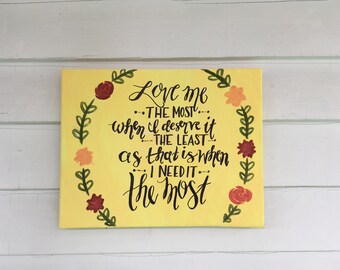 Love me
THE MOST
when I deserve it
THE LEAST
as that is when
I NEED IT
the most